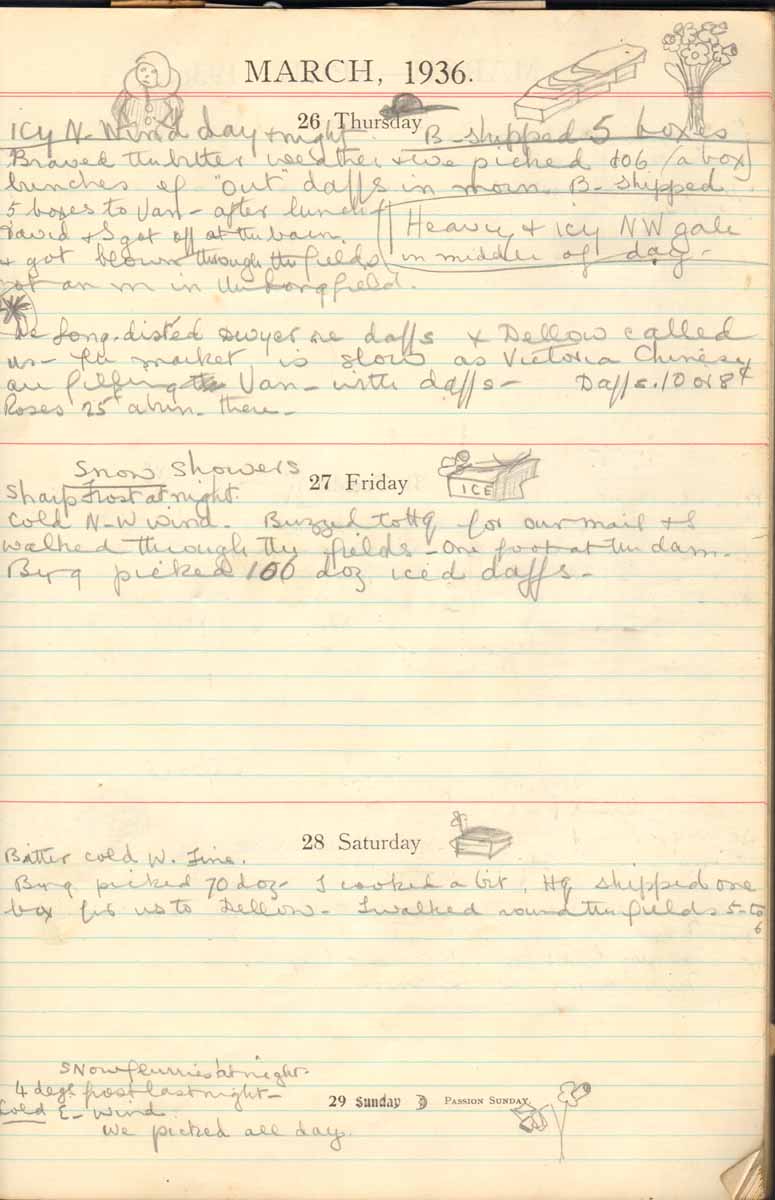 MARCH, 1936.
26 Thursday
Icy N- Wind day + night B- shipped 5 boxes
Braved the bitter weather + we picked 106 (a box)
bunches of "out" daffs in morn. B- shipped
5 boxes to Van- after lunch
David + I got off at the barn.
Heavy + icy NW gale
+ got blown through the fields
in middle of day-
not an in the Longfield.
We long-disted re daffs + Dellow called
us- the market is slow as Victoria Chinese
are filling Van- with daffs- Daffs. 10 or 8¢
Roses 25¢ a bun. there-
Snow Showers
27 Friday
ICE
Sharp frost at night.
Cold N-W wind. Buzzed to Hq for our mail + I
walked through the fields - one foot at the dam.
picked 100 doz iced daffs-
28 Saturday
Bitter cold W. Fine.
picked 70 doz- I cooked a bit, Hq shipped one
box for us to Dellow- I walked round the fields 5-to
6
Snow flurries at night-
4 degs frost last night-
29 Sunday PASSION SUNDAY
Cold E- Wind.
We picked all day.